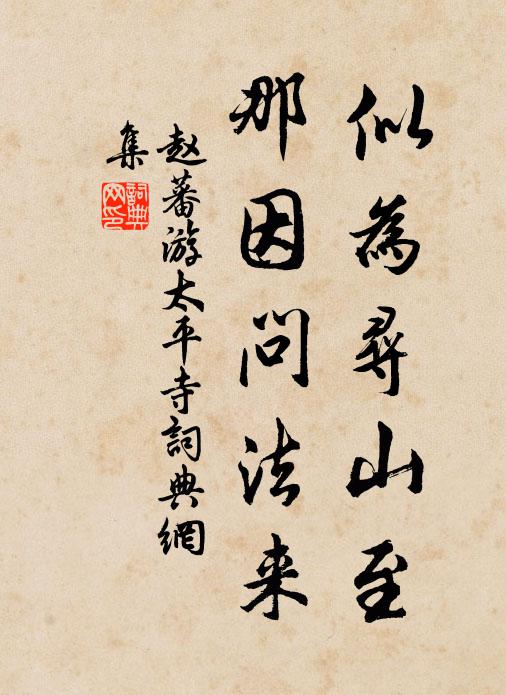 似為尋山至
那因問法来
赵蕃游太平寺詞典網
集
詞典
网印